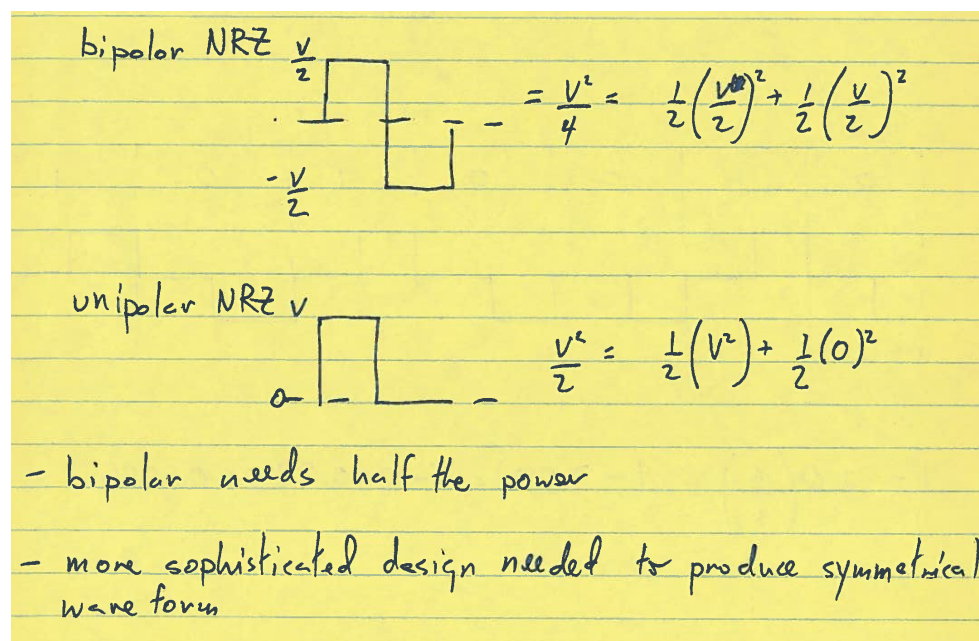 bipolar NRZ V/2
= V²/4 = 1/2(V/2)² + 1/2(V/2)²
-V/2
unipolar NRZ V
V²/2 = 1/2(V²) + 1/2(0)²
0
- bipolar needs half the power
- more sophisticated design needed to produce symmetrical
wave form